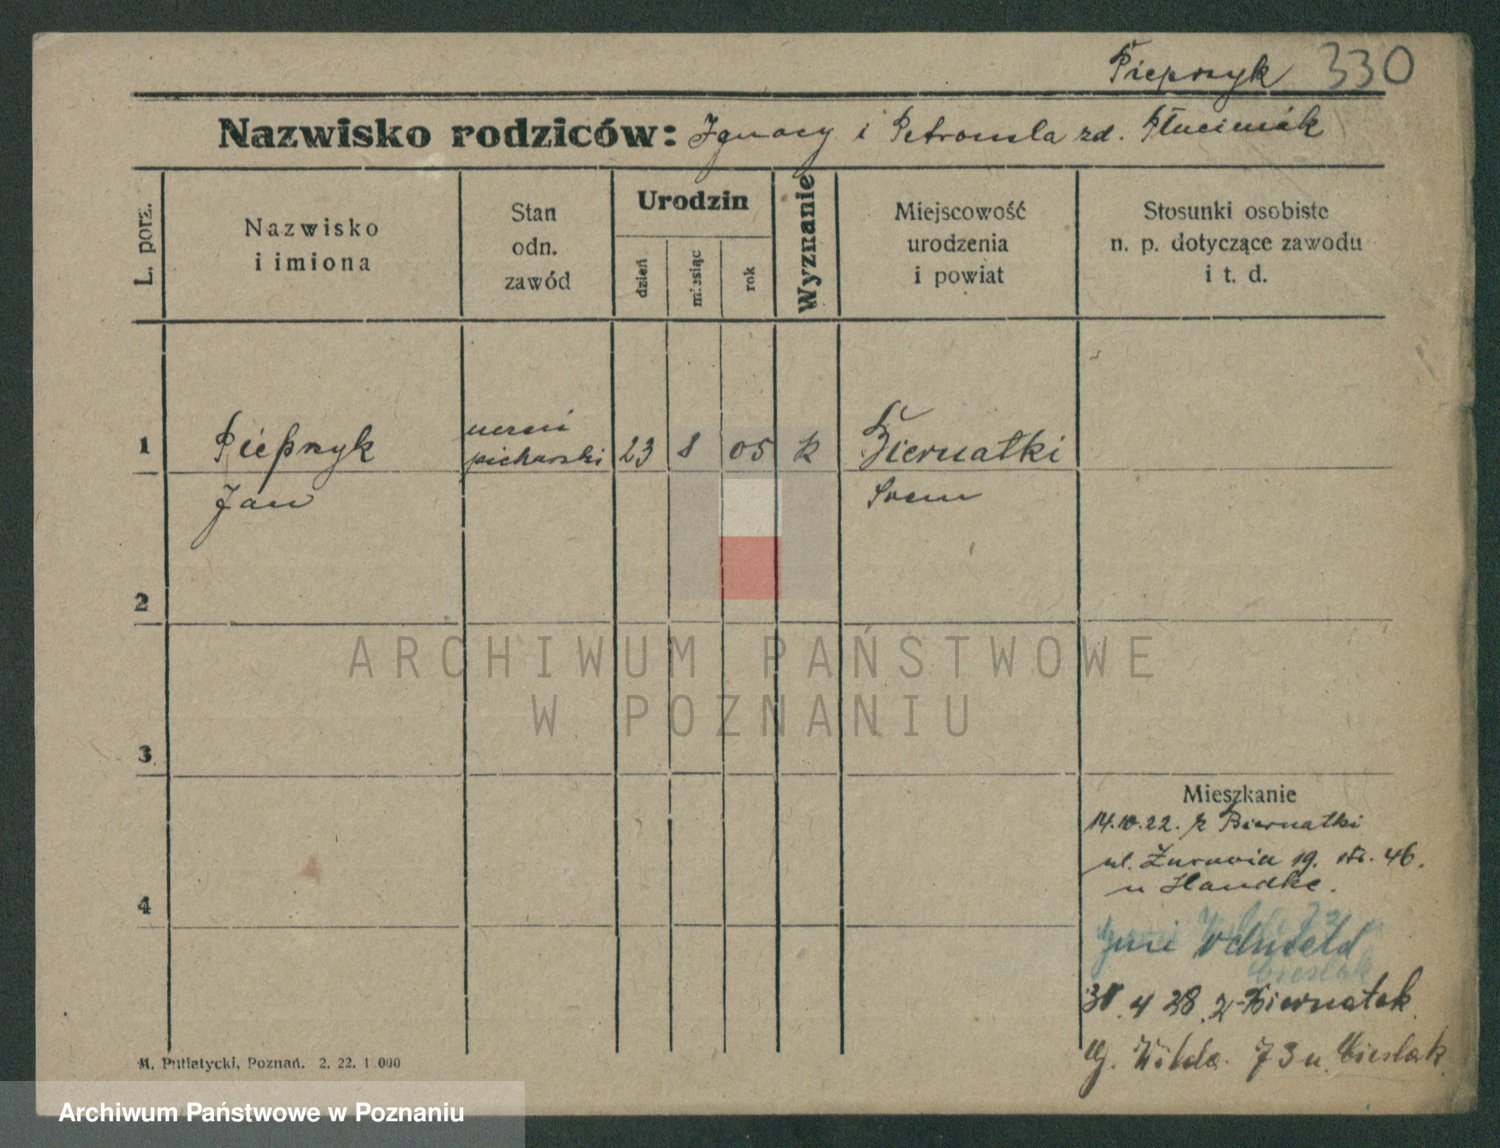 Pieprzyk 330
Nazwisko rodziców: Ignacy i Petronela zd. Płuciniak
L. porz.
Nazwisko
i imiona
Stan
odn.
zawód
Urodzin
dzień
miesiąc
rok
Wyznanie
Miejscowość
urodzenia
i powiat
Stosunki osobiste
n. p. dotyczące zawodu
i t. d.
1 Pieprzyk uczeń piekarski 23 8 05 k Biernatki
Jan Śrem
2
3
4
ARCHIWUM PAŃSTWOWE
W POZNANIU
Mieszkanie
14.10.22. z Biernatki
ul. Żurawia 19. 46.
u Handke.
30 4 28 z Biernatek
Wilda 73 u. Cieślak
M. Putiatycki, Poznań. 2. 22. 1 000
Archiwum Państwowe w Poznaniu